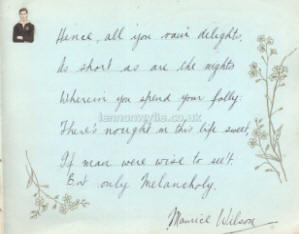 Hence, all you vain delights,
As short as are the nights
Wherein you spend your folly:
There's nought in this life sweet,
If man were wise to see't
But only Melancholy.
Maurice Wilson
lennonwylie.co.uk